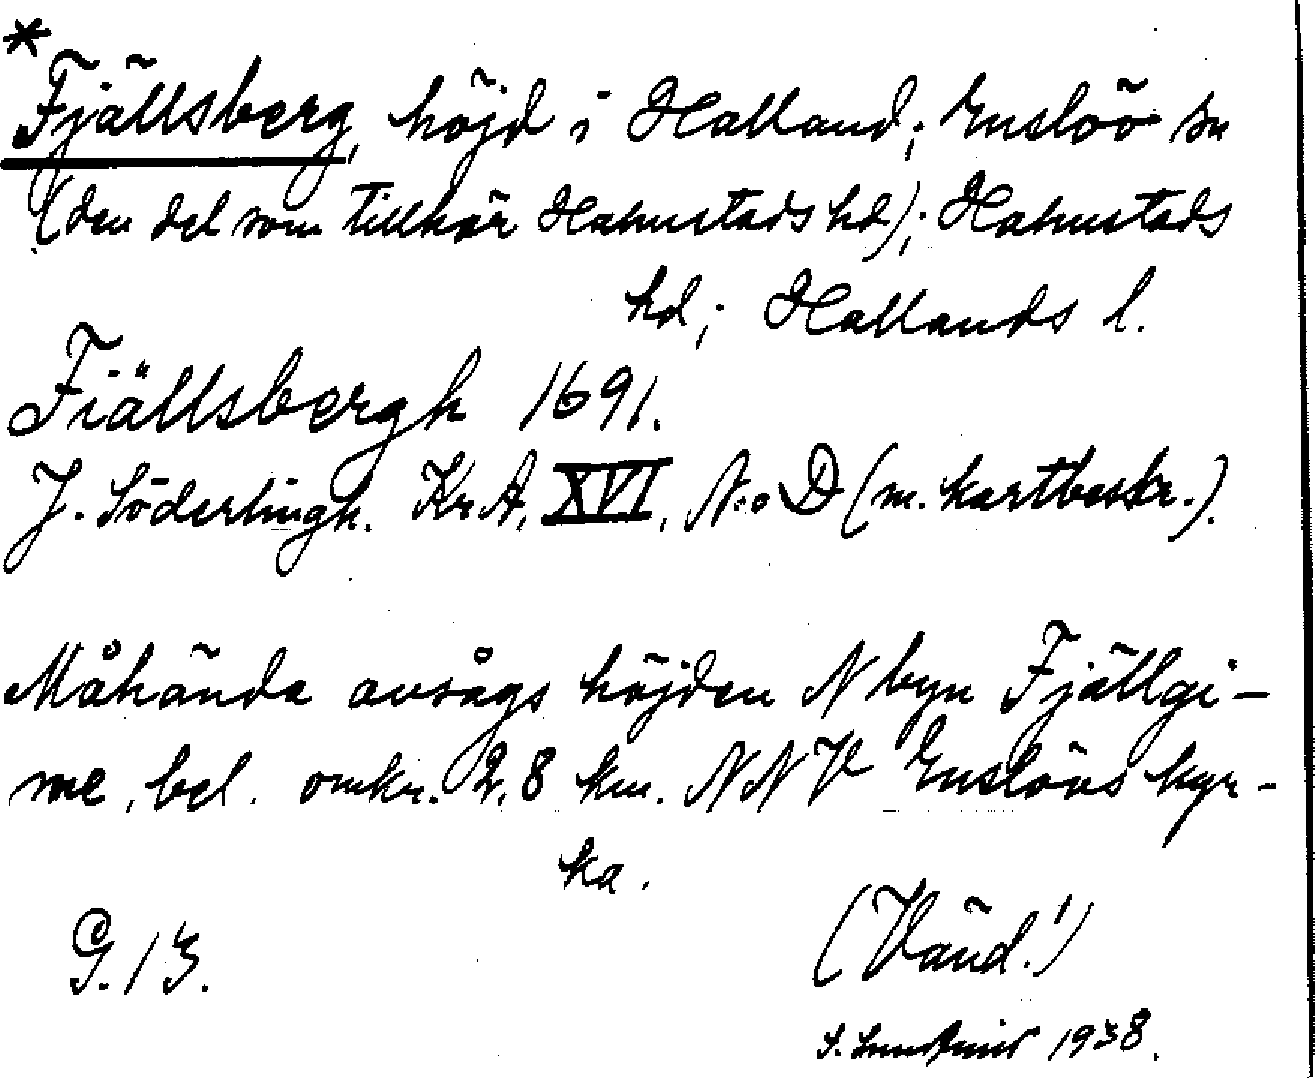 *
Fjällsberg, höjd i Halland; Enslöv sn
(den del som tillhör Halmstads hd); Halmstads
hd; Hallands l.
Fiällsbergh 1691.
J. Söderlingh. Kr.A. XVI, N:o D (m. kartbeskr.).
Måhända avsågs höjden N byn Fjällgi-
me, bel. omkr. 2,8 km. NNV Enslövs kyr-
ka.
G. 13.
(Vänd!)
S. 1938.